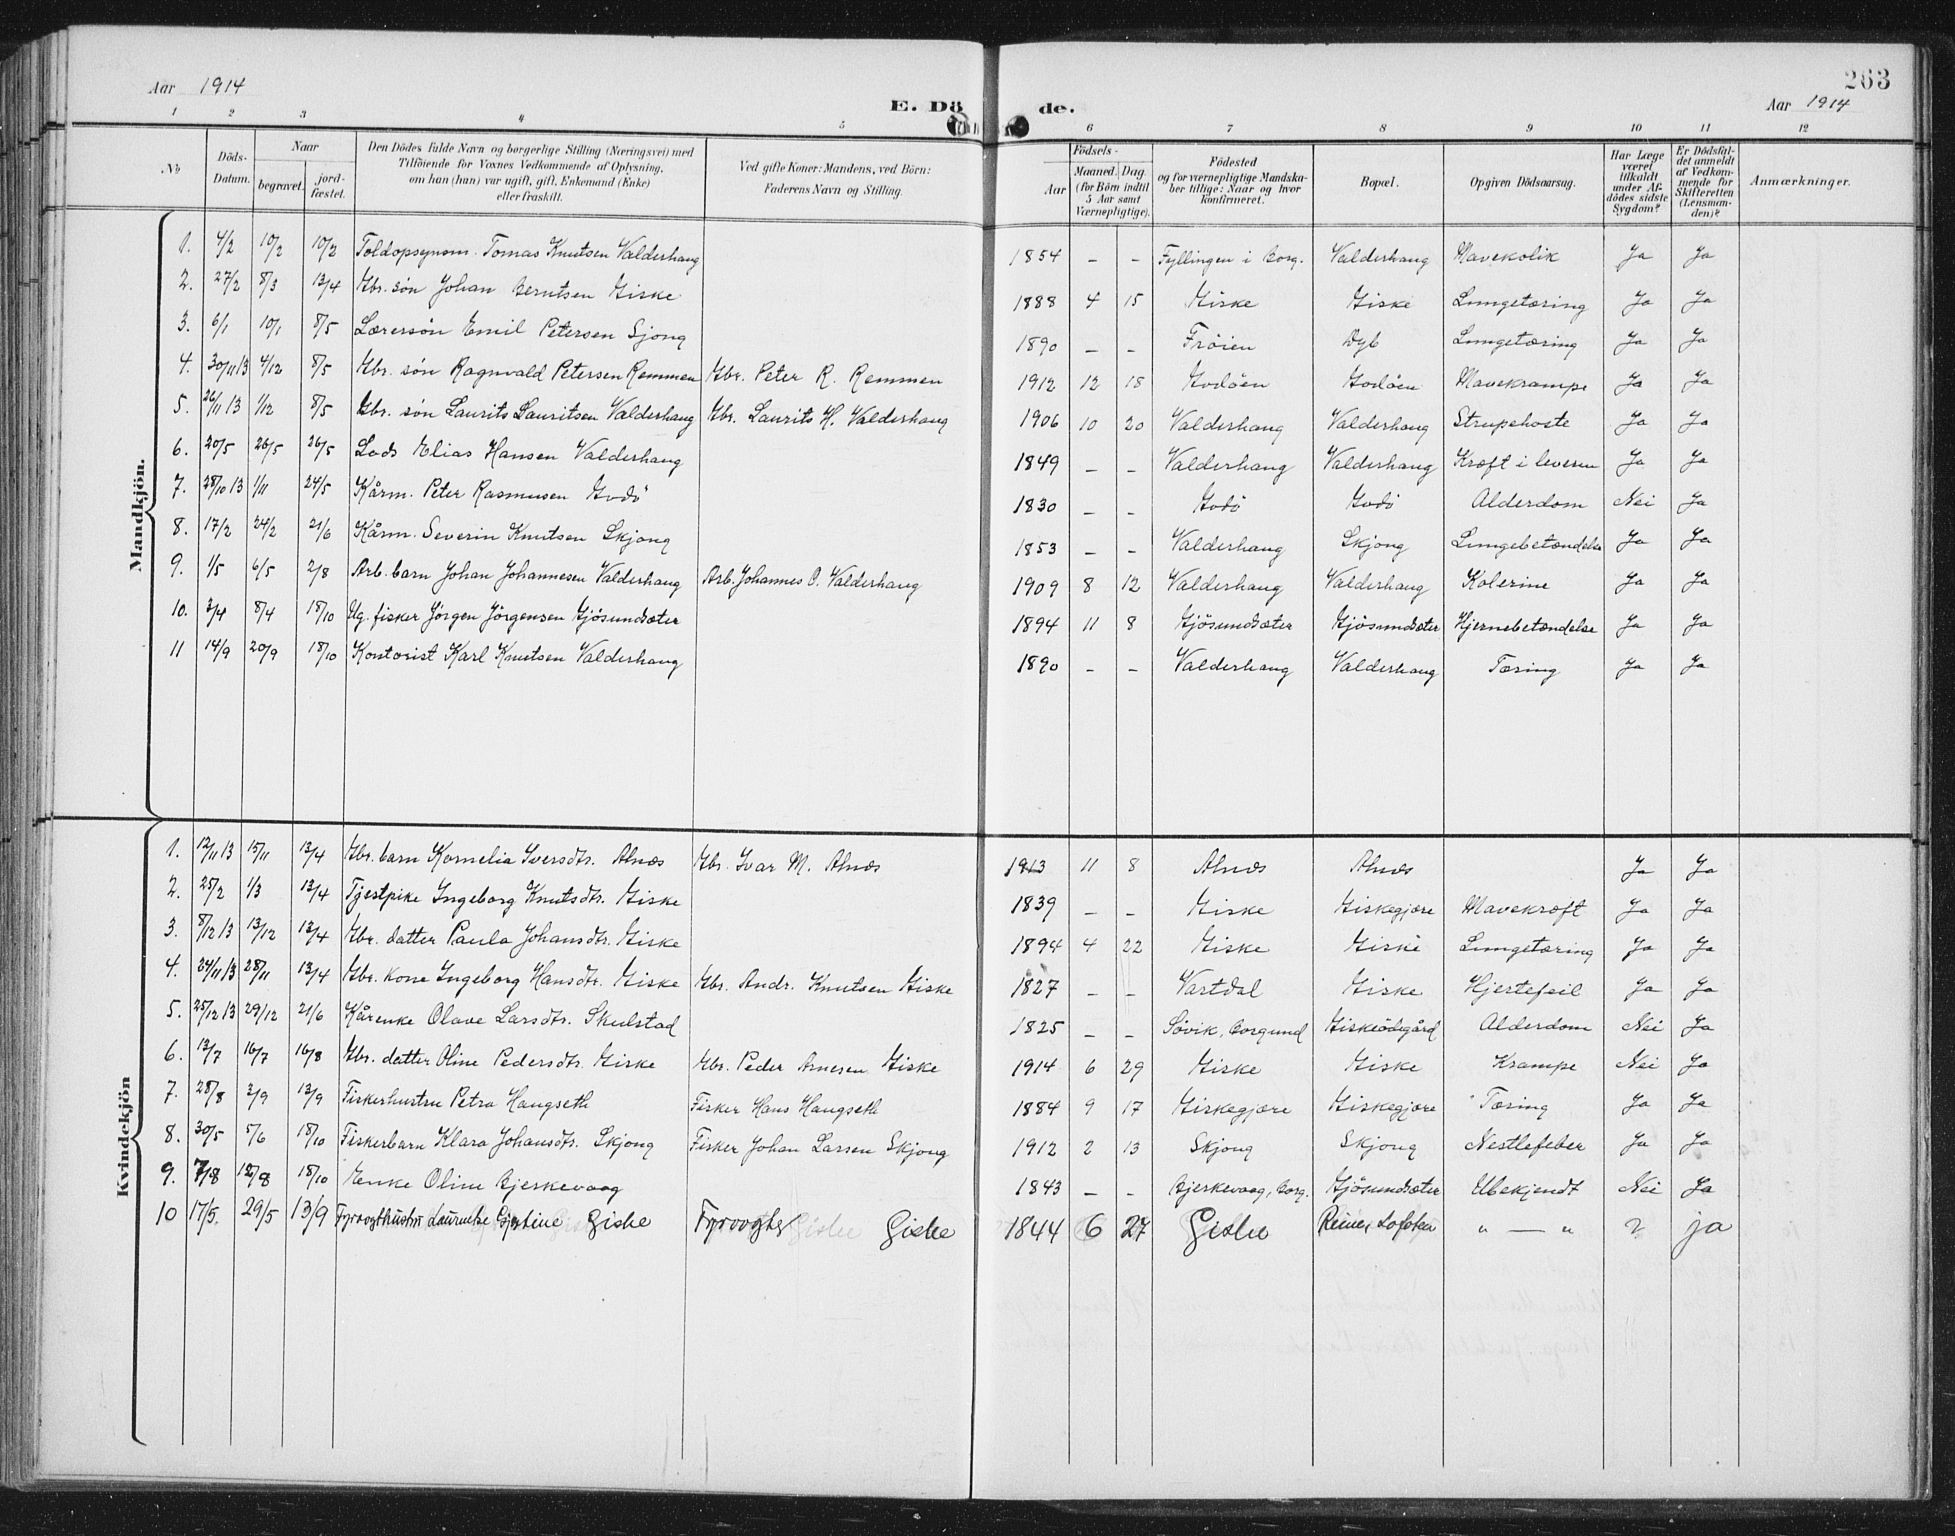 263
Aar 1914 E. Dö de. Aar 1914
1 2 3 4 5 6 7 8 9 10 11 12
No. Döds-Datum. Naar begravet. jord-fæstet. Den Dödes fulde Navn og borgerlige Stilling (Næringsvei) med Tilföiende for Voxnes Vedkommende af Oplysning, om han (hun) var ugift, gift, Enkemand (Enke) eller fraskilt. Ved gifte Koner: Mandens, ved Börn: Faderens Navn og Stilling. Födsels- Aar Maaned. Dag. (for Börn indtil 5 Aar samt Værnepligtige). Födested og for værnepligtige Mandskaber tillige: Naar og hvor konfirmeret. Bopæl. Opgiven Dödsaarsag. Har Læge været tilkaldt under Afdödes sidste Sygdom? Er Dödsfaldet anmeldt af Vedkommende for Skifteretten (Lensmanden)? Anmærkninger.
Mandkjön.
1. 4/2 10/2 10/2 Toldopsynsm. Tomas Knutsen Valderhaug 1854 – – Fyllingen i Borg. Valderhaug Mavekolik Ja Ja
2. 27/2 8/3 13/4 Gbr. søn Johan Berntsen Giske 1888 4 15 Giske Giske Lungetæring Ja Ja
3. 6/1 10/1 8/5 Lærersön Emil Petersen Sjong 1890 – – Fröien Dyb Lungetæring Ja Ja
4. 30/11 13 4/12 8/5 Gbr. søn Ragnvald Petersen Remmen Gbr. Peter R. Remmen 1912 12 18 Godöen Godöen Mavekrampe Ja Ja
5. 26/11 13 1/12 8/5 Gbr. søn Laurits Lauritsen Valderhaug Gbr. Laurits H. Valderhaug 1906 10 20 Valderhaug Valderhaug Strupehoste Ja Ja
6. 20/5 26/5 26/5 Lods Elias Hansen Valderhaug 1849 – – Valderhaug Valderhaug Kræft i leveren Ja Ja
7. 28/10 13 1/11 24/5 Kårm. Peter Rasmusen Godö 1830 – – Godö Godö Alderdom Nei Ja
8. 17/2 24/2 21/6 Kårm. Severin Knutsen Skjong 1853 – – Valderhaug Skjong Lungebetændelse Ja Ja
9. 1/5 6/5 2/8 Arb. barn Johan Johannesen Valderhaug Arb. Johannes O. Valderhaug 1909 8 12 Valderhaug Valderhaug Kolerine Ja Ja
10. 3/4 8/4 18/10 Ug. fisker Jörgen Jörgensen Gjösundsæter 1894 11 8 Gjösundsæter Gjösundsæter Hjernebetændelse Ja Ja
11 14/9 20/9 18/10 Kontorist Karl Knutsen Valderhaug 1890 – – Valderhaug Valderhaug Tæring Ja Ja
Kvindekjön
1. 12/11 13 15/11 13/4 Gbr. barn Kornelia Iversdtr. Alnæs Gbr. Ivar M. Alnæs 1913 11 8 Alnæs Alnæs Ja Ja
2. 25/2 1/3 13/4 Tjestpike Ingeborg Knutsdtr. Giske 1839 – – Giske Giskegjære Mavekræft Ja Ja
3. 8/12 13 13/12 13/4 Gbr. datter Paula Johansdtr. Giske 1894 4 22 Giske Giske Lungetæring Ja Ja
4. 24/11 13 28/11 13/4 Gbr. kone Ingeborg Hansdtr. Giske Gbr. Andr. Knutsen Giske 1827 – – Vartdal Giske Hjertefeil Ja Ja
5. 25/12 13 29/12 21/6 Kårenke Olave Larsdtr. Skulstad 1825 – – Sövik, Borgund Giskeödegård Alderdom Nei Ja
6. 13/7 16/7 16/8 Gbr. datter Oline Pedersdtr. Giske Gbr. Peder Arnesen Giske 1914 6 29 Giske Giske Krampe Nei Ja
7. 28/8 3/9 13/9 Fiskerhustru Petra Haugseth Fisker Hans Haugseth 1884 9 17 Giskegjære Giskegjære Tæring Ja Ja
8. 30/5 5/6 18/10 Fiskerbarn Klara Johansdtr. Skjong Fisker Johan Larsen Skjong 1912 2 13 Skjong Skjong Nestlefeber Ja Ja
9. 7/8 12/8 18/10 Enke Oline Bjerkevaag 1843 – – Bjerkevaag, Borg. Gjösundsæter Ubekjendt Nei Ja
10 17/5. 29/5 13/9 Fyrvogthustru Giske Fyrvogt Giske 1844 6 27 Giske Reine, Lofoten " — " ja